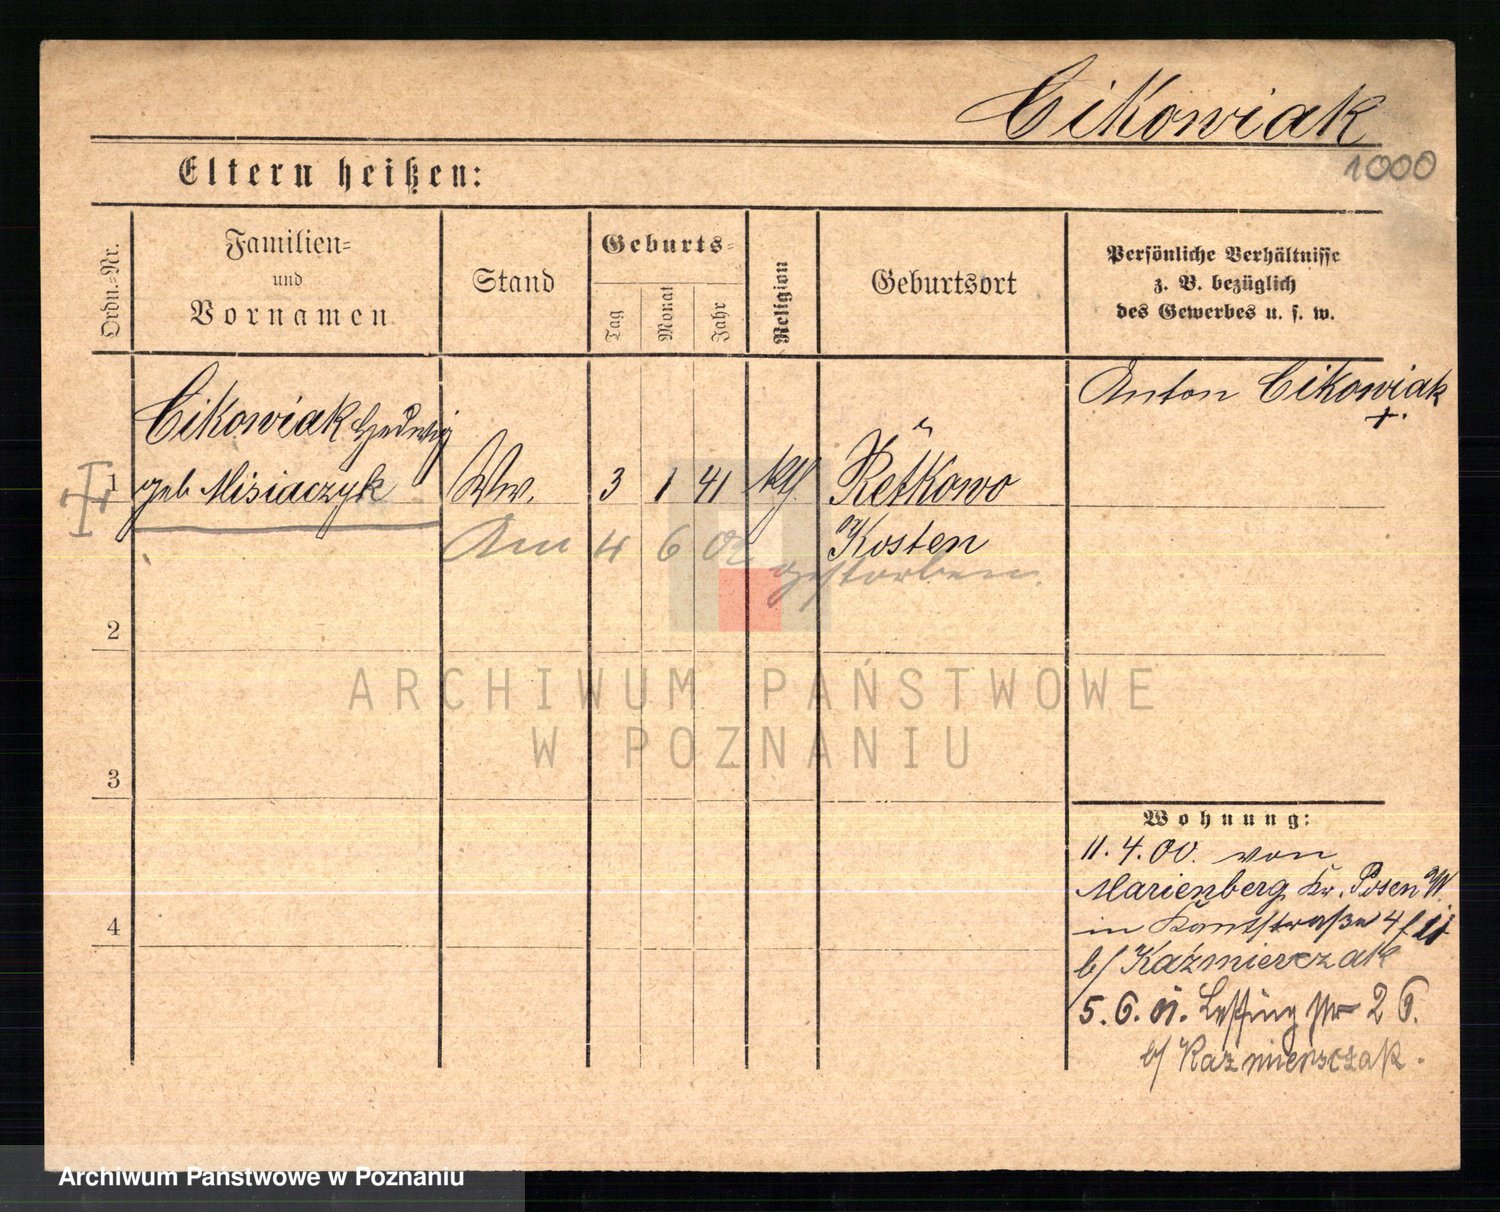 Cikowiak
1000
Eltern heißen:
Ordn.-Nr.
Familien-
und
Vornamen
Stand
Geburts-
Tag
Monat
Jahr
Religion
Geburtsort
Persönliche Verhältnisse
z. B. bezüglich
des Gewerbes u. s. w.
Anton Cikowiak
+.
Cikowiak Hedwig
1 geb Misiaczyk Ww. 3 1 41 kth Retkowo
Kosten
Am 4 6 02 gestorben.
2
3
4
ARCHIWUM PAŃSTWOWE
W POZNANIU
Wohnung:
11. 4. 00. von
Marienberg Kr. Posen W.
in Kantstraße 4
b/ Kaźmierczak
5. 6. 01. Lessing str 26.
b/ Kazmierczak.
Archiwum Państwowe w Poznaniu